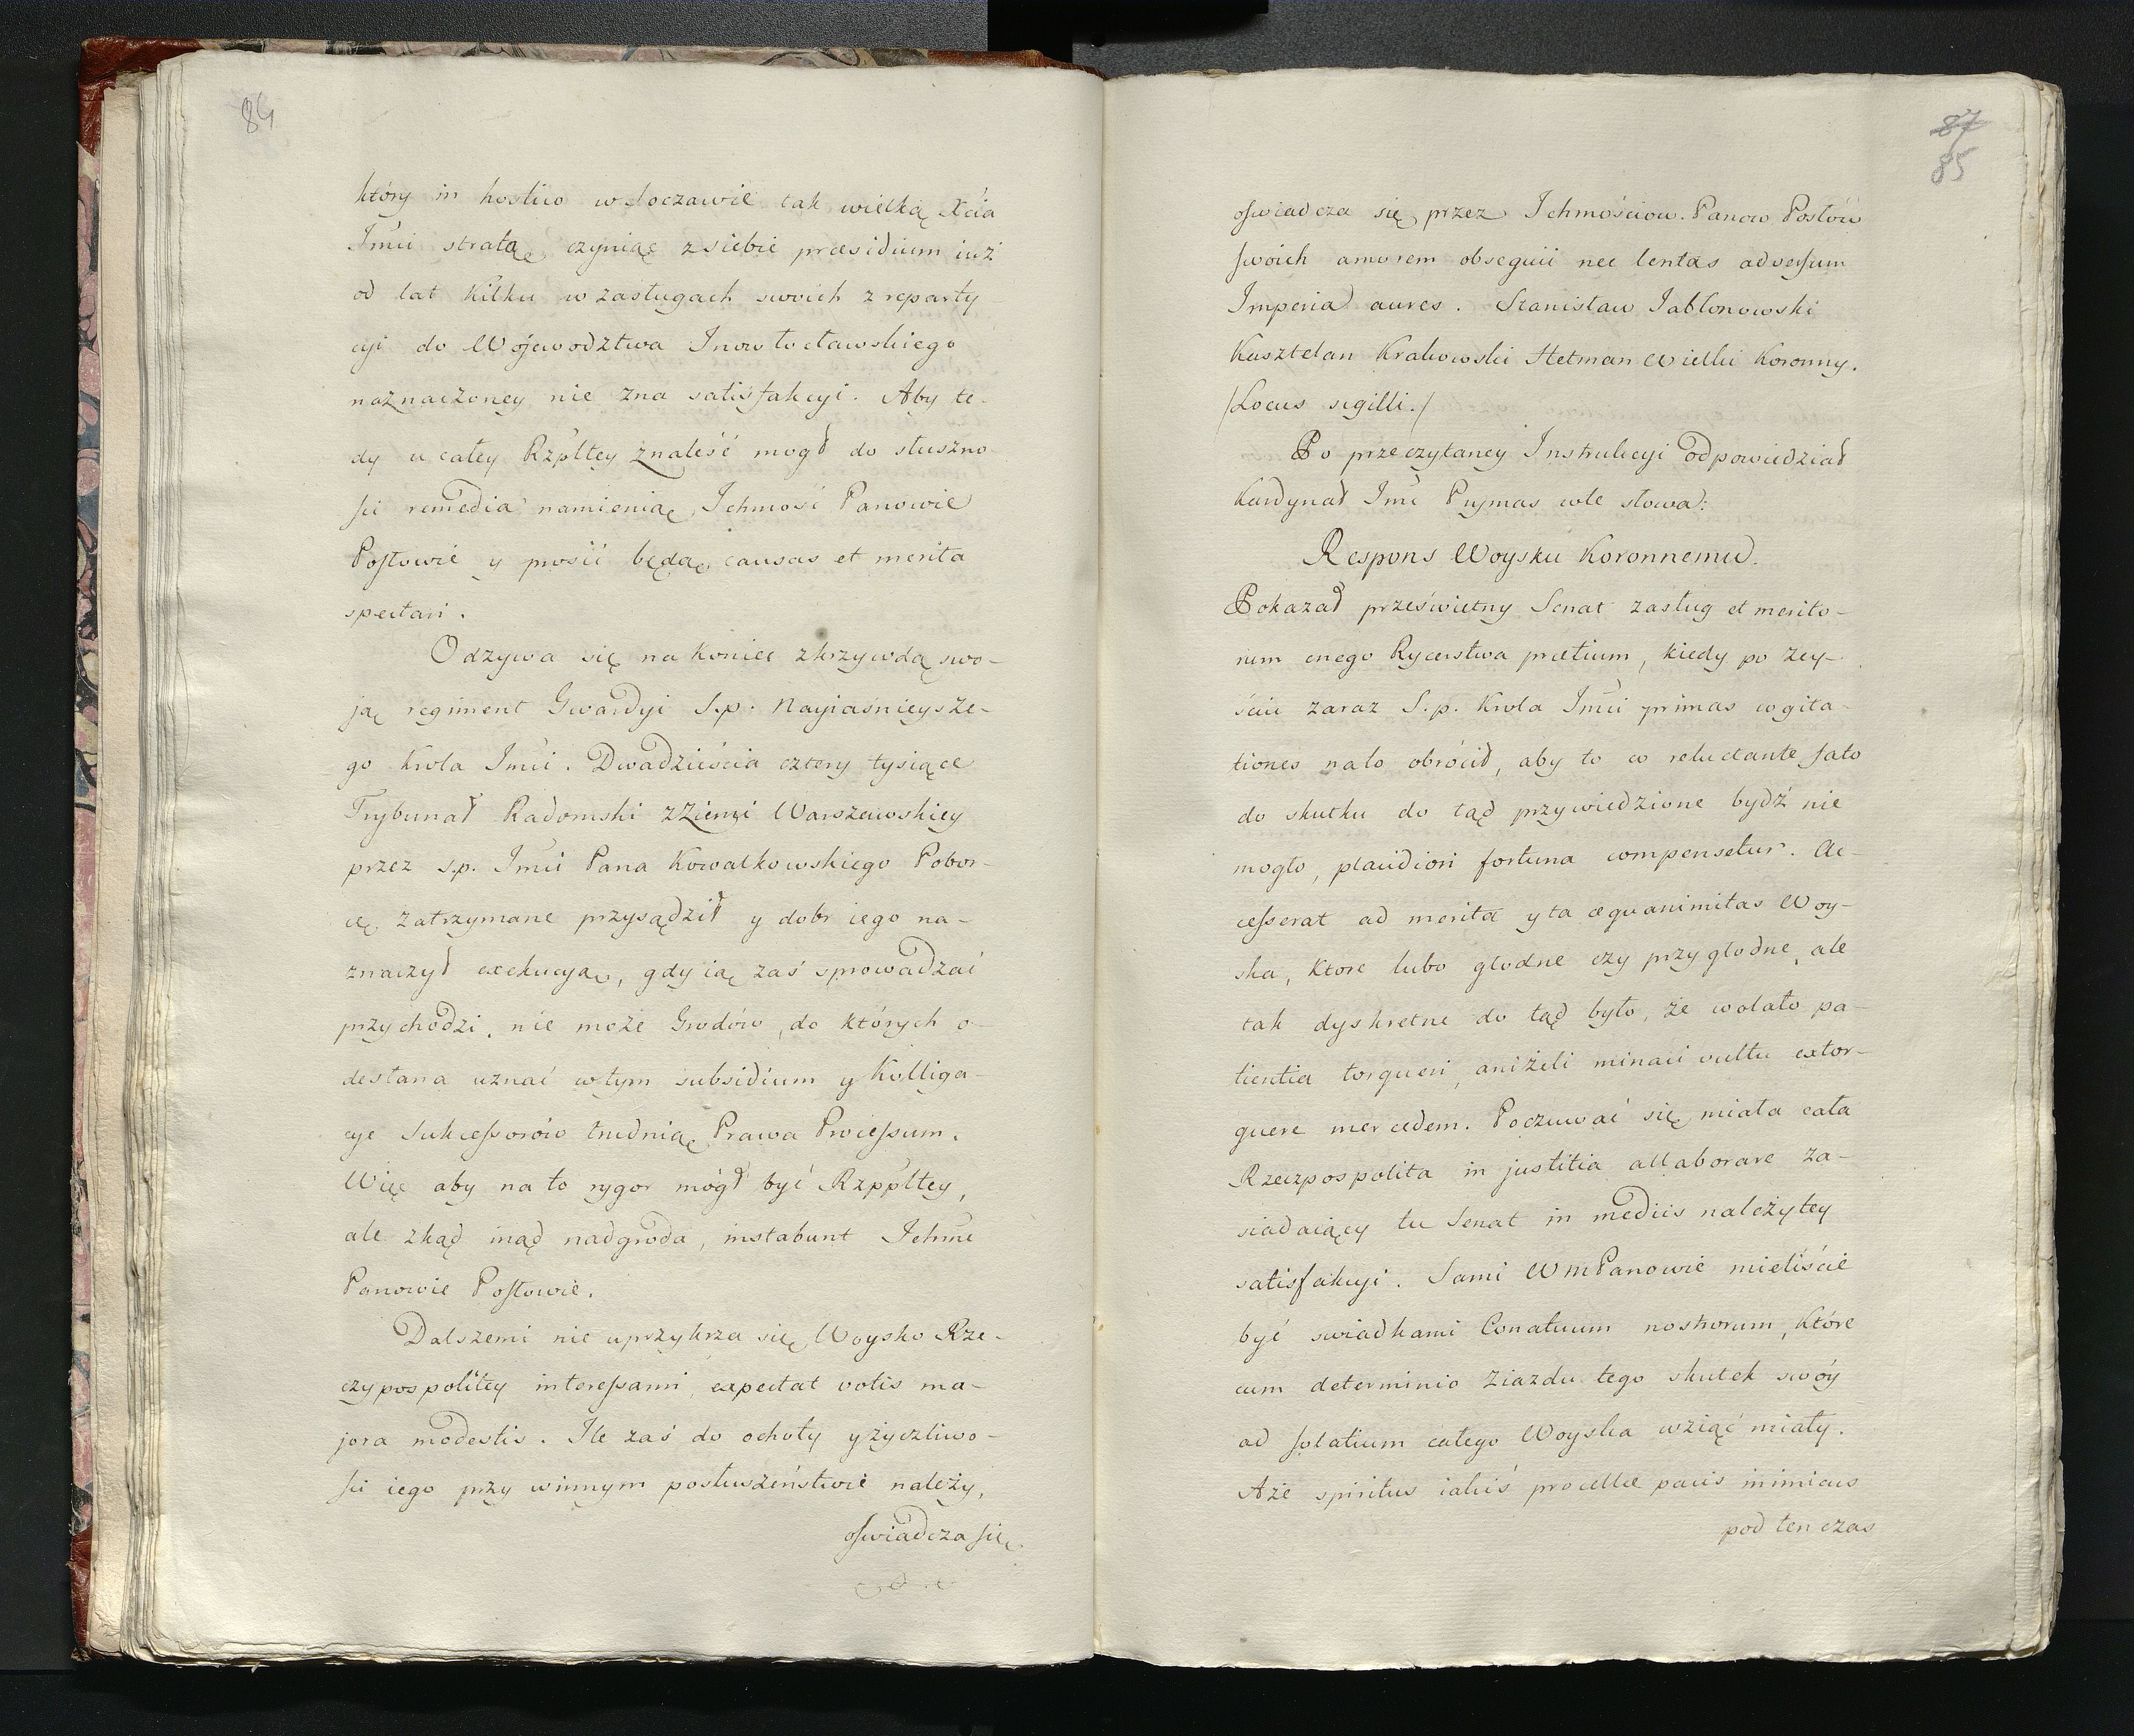 84
który in hostico w Soczawie tak wielką Xcia
Jmci stratą czyniąc z siebie præsidium iuż
od lat kilku w zasługach swoich z reparty
cyi do Wójewodztwa Inowłocławskiego
naznaczoney nie zna satisfakcyi. Aby te-
dy u całey Rzpltey znaleść mogł do słuszno
ści remedia namienią Ichmość Panowie
Posłowie y prosić będą causas et merita
spectari.
Odzywa się na koniec z krzywdą swo-
ją regiment Gwardyi S.p. Nayiaśnieysze-
go Krola Jmci. Dwadzieścia cztery tysiące
Trybunał Radomski z Ziemi Warszawskiey
przez s.p. Jmci Pana Kowalkowskiego Pobor-
cę zatrzymane przysądził y dobr iego na-
znaczył exekucyą, gdy ią zaś sprowadzać
przychodzi, nie może Grodów, do których o-
desłana uznać w tym subsidium y Kolliga-
cye Sukcessorów trudnią Prawa Processum.
Więc aby na to rygor mógł być Rzppltey,
ale zkąd inąd nadgroda, instabunt Ichmć
Panowie Posłowie.
Dalszemi nie uprzykrza się Woysko Rze-
czypospolitey interessami, expectat votis ma-
jora modestis. Ile zaś do ochoty y życzliwo-
ści iego przy winnym posłuszeństwie należy,
oświadcza się
87
85
oświadcza się przez Ichmościow Panow Posłów
swoich amorem obsequii nec lentas adversum
Imperia aures. Stanisław Jabłonowski
Kasztelan Krakowski Hetman Wielki Koronny.
/Locus sigilli./
Po przeczytaney Instrukcyi odpowiedział
Kardynał Jmć Prymas w te słowa:
Respons Woysku Koronnemu.
Pokazał prześwietny Senat zasług et merito-
rum onego Rycerstwa pretium, kiedy po zey-
ściu zaraz S.p. Krola Jmci primas cogita-
tiones na to obrócił, aby to co reluctante fato
do skutku do tąd przywiedzione bydź nie
mogło, plaudiori fortuna compensetur. Ac-
cesserat ad merita y ta æquanimitas Woy-
ska, ktore lubo głodne czy przygłodne, ale
tak dyskretne do tąd było, że wolało pa-
tientia torqueri, aniżeli minaci vultu extor-
quere mercedem. Poczuwać się miała cała
Rzeczpospolita in justitia allaborare za-
siadaiący tu Senat in mediis należytey
satisfakcyi. Sami WmPanowie mieliście
być swiadkami Conatuum nostrorum, które
cum determinio Ziazdu tego skutek swóy
ad solatium całego Woyska wziąć miały.
Aże spiritus iakiś procellæ pacis inimicus
pod ten czas